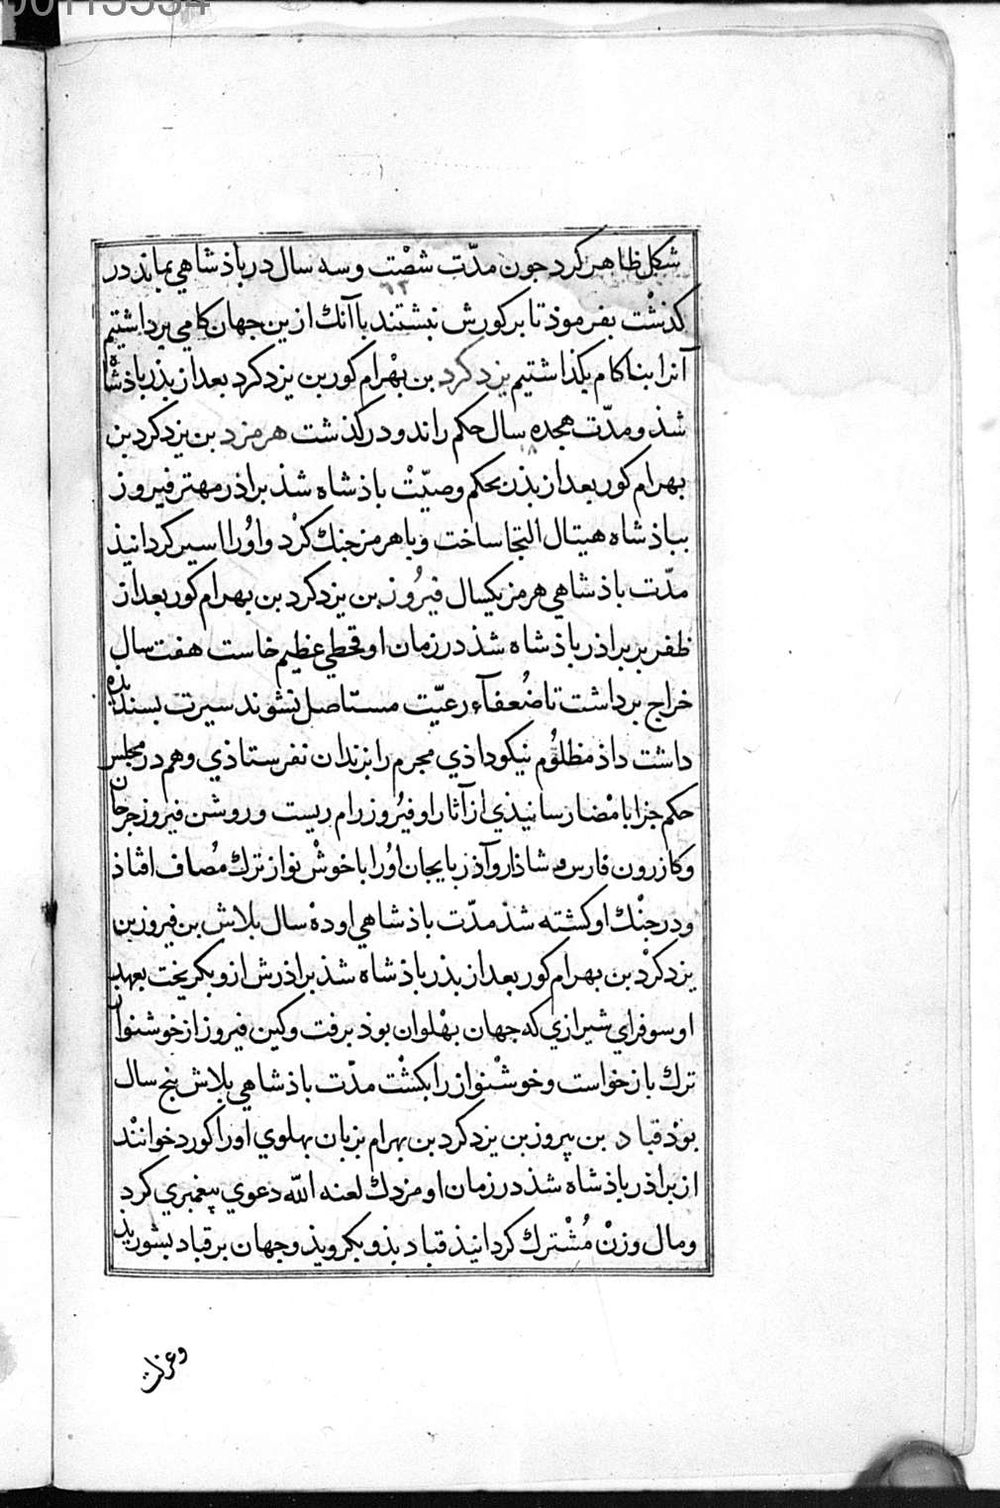 00113334
شكل ظاهر كرد جون مدّت شصْت وسه سال در باذشاهي بماند در
٦٣
كذشْت بفرموذ تا بر كورش نبشتند با آنك ازين جهان كامي برداشتيم
آنرا بناكام بكذاشتيم يزدكرد بن بهْرام كور بن يزدكرد بعد از بذر باذشاه
شذ ومدّت هجده سال حكم راند ودر كذشت هرمزد بن يزدكرد بن
١٨
بهرام كور بعد از بذر بحكم وصيّتْ باذشاه شذ براذر مهتر فيروز
بباذشاه هيتال التجا ساخت وبا هرمز جنك كرْد واوُرا اسير كردانيذ
مدّت باذشاهي هرمز يكسال فيرُوز بن يزدكرد بن بهرام كور بعد از
ظفر بر براذر باذشاه شذ در زمان او قحطي عظيم خاست هفت سال
خراج برداشت تا ضُعفآء رعيّت مستاصل نشوند سيرت بسنديذه
داشت داذ مظلوُم نيكو داذي مجرم را بزندان نفرستاذي وهم در مجلس
حكم جزا بامْضا رسانيذي از آثار او فيرُوز رام ريست وروشن فيروز جرجان
وكازرون فارس وشاذارو آذربايجان اوُرا با خوشْ نواز ترك مُصاف افتاذ
ودر جنْك او كشته شذ مدّت باذشاهي او دهْ سال بلاش بن فيروز بن
يزدكرْد بن بهرام كور بعد از بذر باذشاه شذ براذرش ازو بكريخت بعهد
او سوفراي شيرازي كه جهان بهْلوان بوذ برفت وكين فيروز از خوشنواز
ترك باز خواست وخوشْنواز را بكشْت مدّت باذشاهي بلاش بنج سال
بوذ قباد بن پيروز بن يزدكرد بن بهرام بزبان بهلوي اورا كورد خوانْند
از براذر باذشاه شذ در زمان او مزدك لعنه الله دعوي پيغمبري كرد
ومال وزنْ مُشْترك كردانيذ قباد بذو بكرويذ وجهان بر قباد بشوريذ
وعزلت